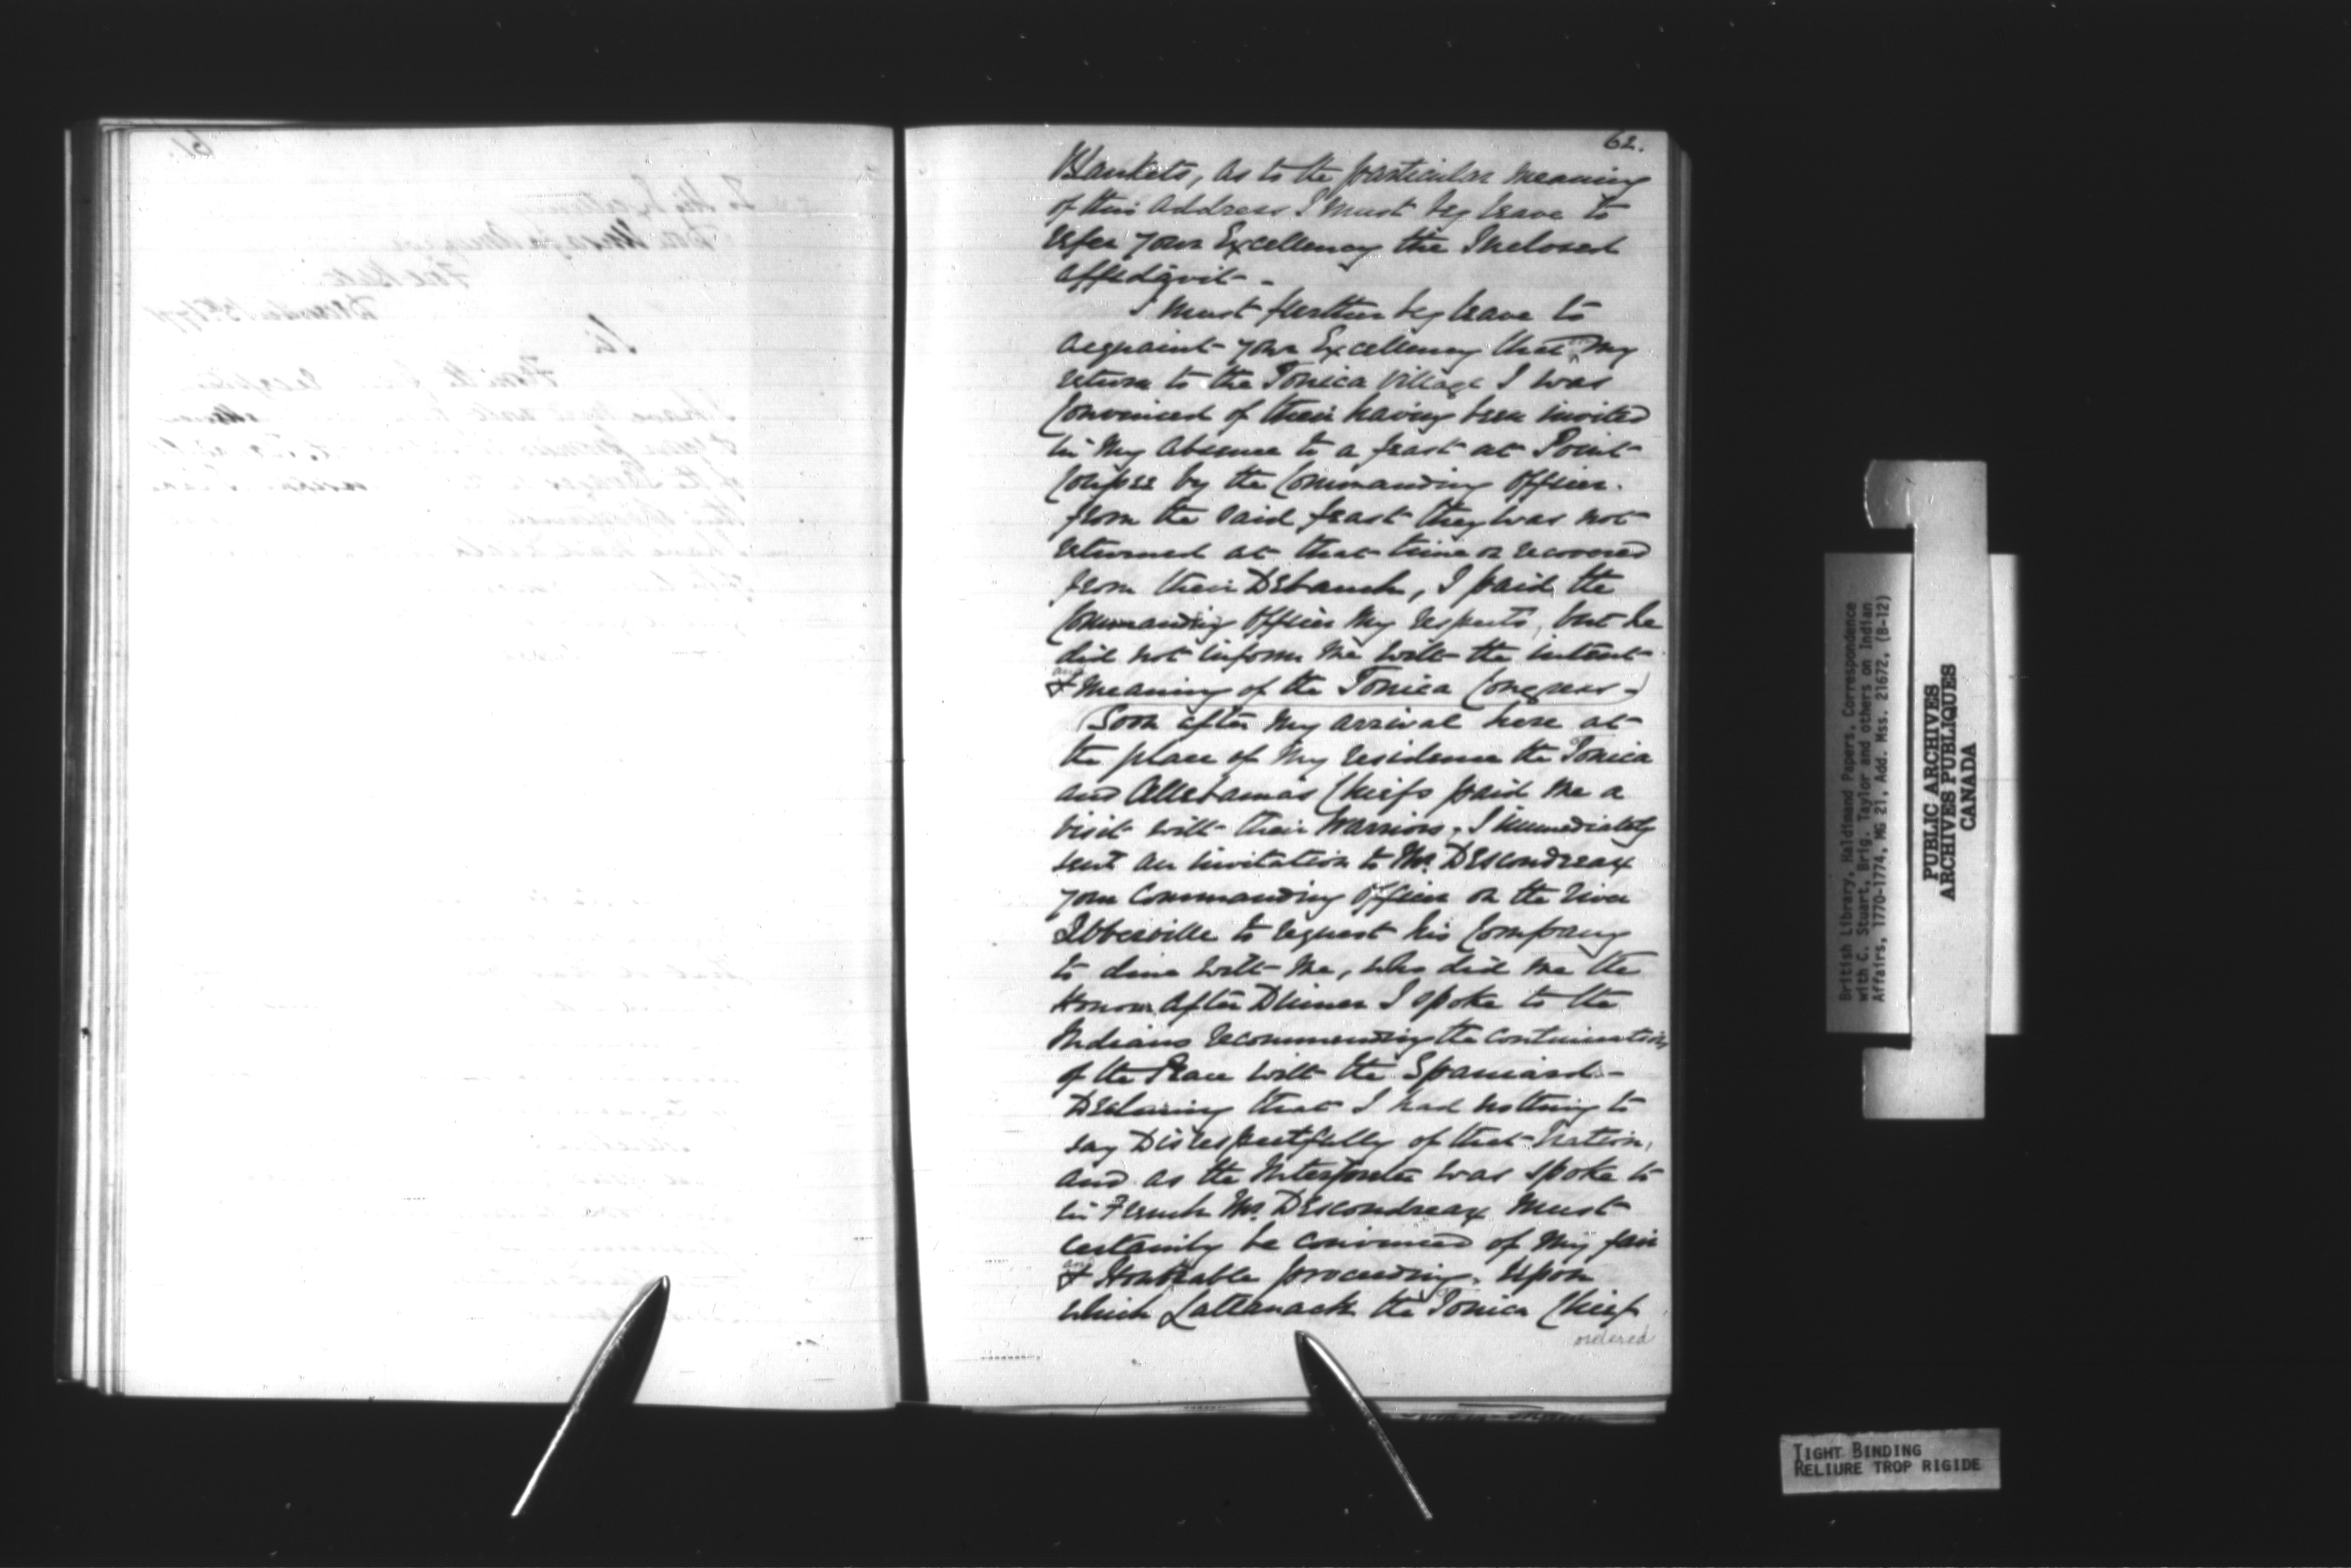 62.
Blankets, as to the particular meaning
of this address I must beg leave to
refer your Excellency the Inclosed
affidavit -
I must further beg leave to
acquaint your Excellency that my
return to the Tonica Village I was
Convinced of their having been invited
in my absence to a feast at Point
Coupee by the Commanding Officer.
from the said feast they was not
returned at that time or recovered
from their Debauch, I paid the
Commanding Officer my respects, but he
did not inform me with the intent
and
& meaning of the Tonica Congress -
Soon after my arrival here at
the place of my residence the Tonica
and Allebamas Chiefs paid me a
visit with their Warriors, I immediately
sent an invitation to Mr. Descondreax
your Commanding Officer on the river
Ibberville to request his Company
to dine with me, who did me the
Honour after Dinner I spoke to the
Indians recommending the continuation
of the Peace with the Spaniard -
Declaring that I had nothing to
say Disrespectfully of that Nation,
and as the Interpreter was spoke to
in French Mr. Descondreax must
certainly be convinced of my fair
and
& Honorable proceeding. Upon
which Lattanack the Tonica Chief
ordered
British Library, Haldimand Papers, Correspondence
with C. Stuart, Brig. Taylor and others on Indian
Affairs, 1770-1774, MG 21, Add. Mss. 21672, (B-12)
PUBLIC ARCHIVES
ARCHIVES PUBLIQUES
CANADA
TIGHT BINDING
RELIURE TROP RIGIDE